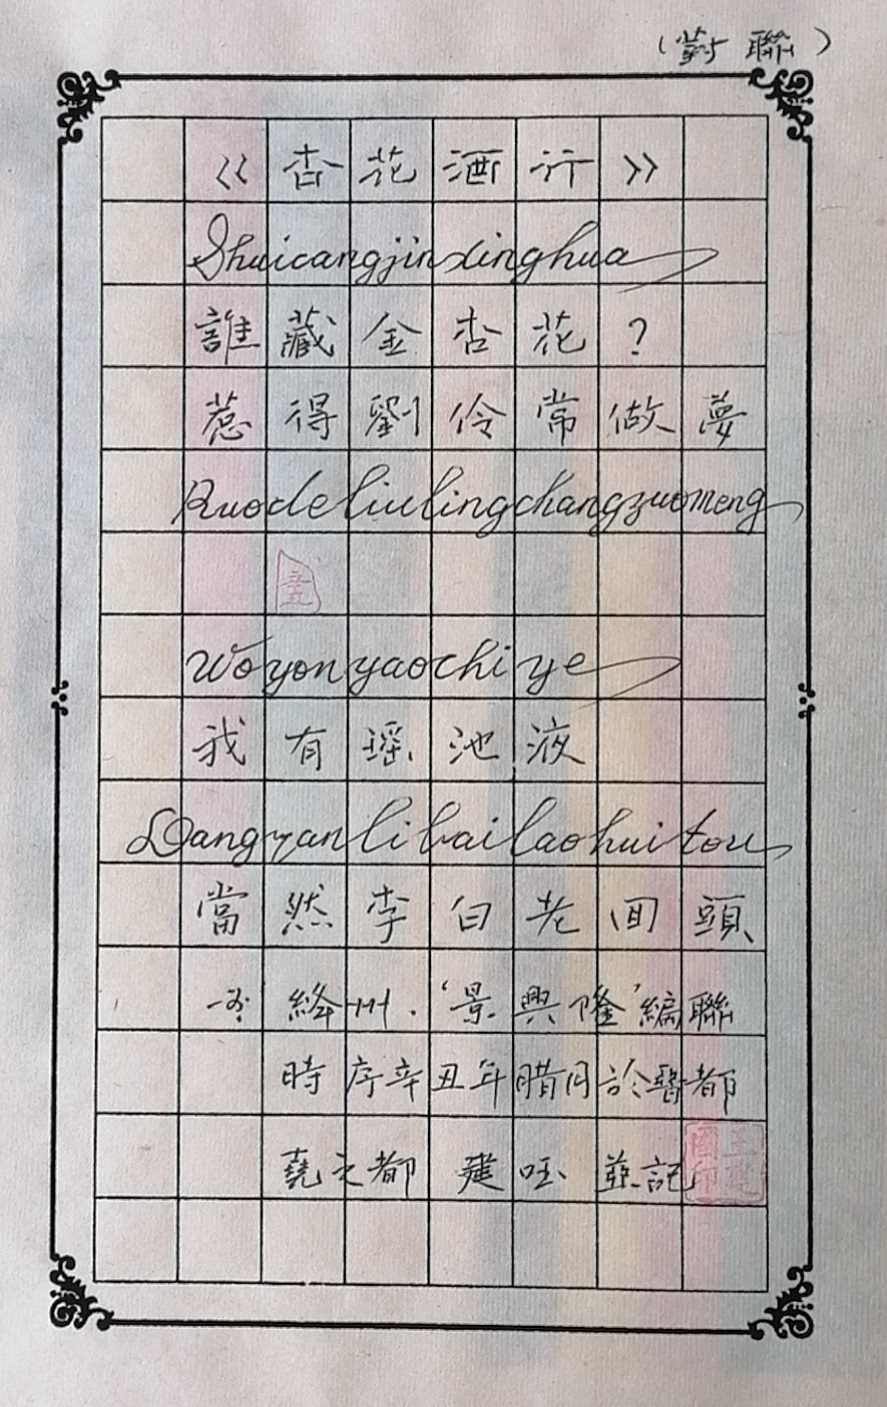 （對聯）
《杏花酒行》
Shuicangjinxinghua
誰藏金杏花？
惹得劉伶常做夢
Ruodeliulingchangzuomeng
Woyouyaochiye
我有瑶池液
Dangranlibailaohuitou
當然李白老回頭
絳州·‘景興隆’編聯
時序辛丑年腊月於醫都
堯之都 建 並記